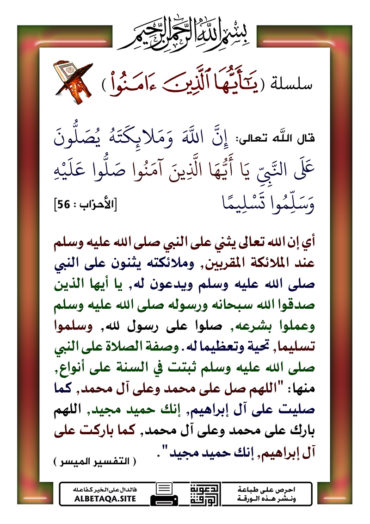 بسم الله الرحمن الرحيم
سلسلة ( يَـٰٓأَيُّهَا ٱلَّذِينَ ءَامَنُوا۟ )
قال اللَّه تعالى: إِنَّ اللَّهَ وَمَلَائِكَتَهُ يُصَلُّونَ
عَلَى النَّبِيِّ يَا أَيُّهَا الَّذِينَ آمَنُوا صَلُّوا عَلَيْهِ
وَسَلِّمُوا تَسْلِيمًا [الأحزاب : 56]
أي إن الله تعالى يثني على النبي صلى الله عليه وسلم
عند الملائكة المقربين, وملائكته يثنون على النبي
صلى الله عليه وسلم ويدعون له, يا أيها الذين
صدقوا الله سبحانه ورسوله صلى الله عليه وسلم
وعملوا بشرعه, صلوا على رسول لله, وسلموا
تسليما, تحية وتعظيما له. وصفة الصلاة على النبي
صلى الله عليه وسلم ثبتت في السنة على أنواع,
منها: "اللهم صل على محمد وعلى آل محمد, كما
صليت على آل إبراهيم, إنك حميد مجيد, اللهم
بارك على محمد وعلى آل محمد, كما باركت على
آل إبراهيم, إنك حميد مجيد".
( التفسير الميسر )
احرص على طباعة
ونشر هذه الورقة
الورقة الدعوية
فالدال على الخير كفاعله
ALBETAQA.SITE